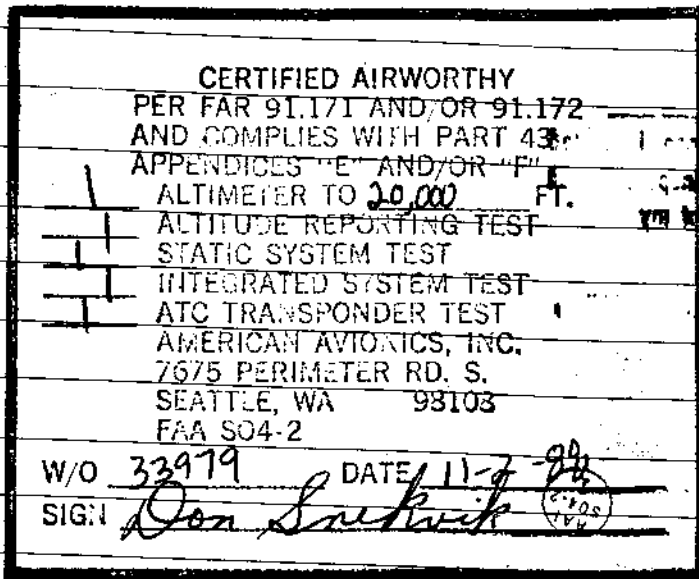 CERTIFIED AIRWORTHY
PER FAR 91.171 AND/OR 91.172
AND COMPLIES WITH PART 43
APPENDICES "E" AND/OR "F"
ALTIMETER TO 20,000 FT.
ALTITUDE REPORTING TEST
STATIC SYSTEM TEST
INTEGRATED SYSTEM TEST
ATC TRANSPONDER TEST
AMERICAN AVIONICS, INC.
7675 PERIMETER RD. S.
SEATTLE, WA 98108
FAA SO4-2
W/O 33979 DATE 11-2-
SIGN Don Snekvik
AAI
SO4-2